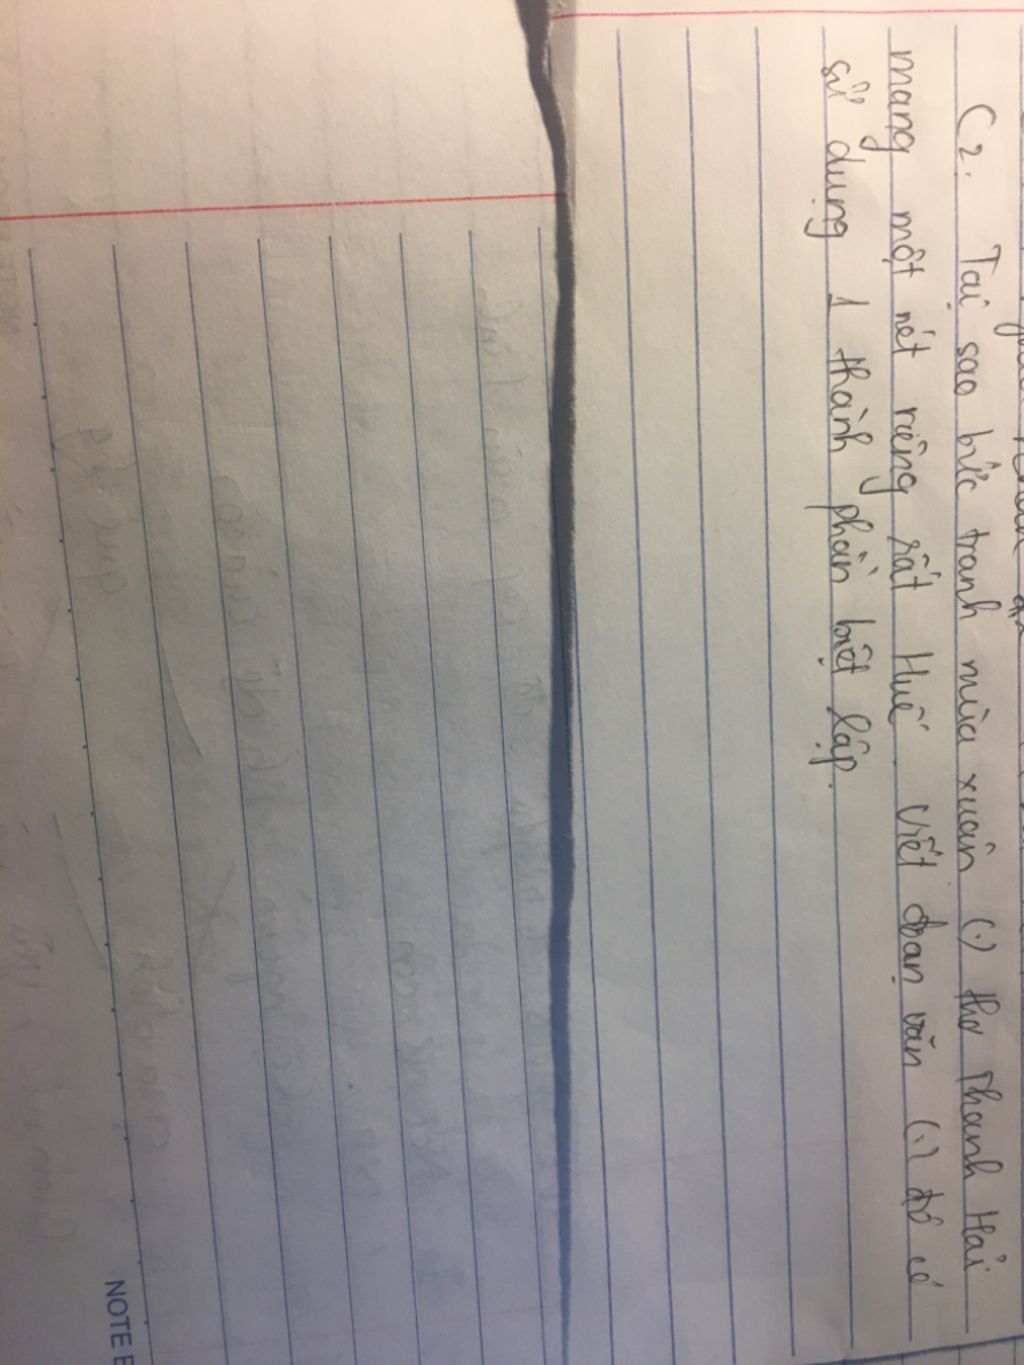 C2. Tại sao bức tranh mùa xuân (.) thơ Thanh Hải
mang một nét riêng rất Huế. Viết đoạn văn (.) đó có
sử dụng 1 thành phần biệt lập.
NOTE